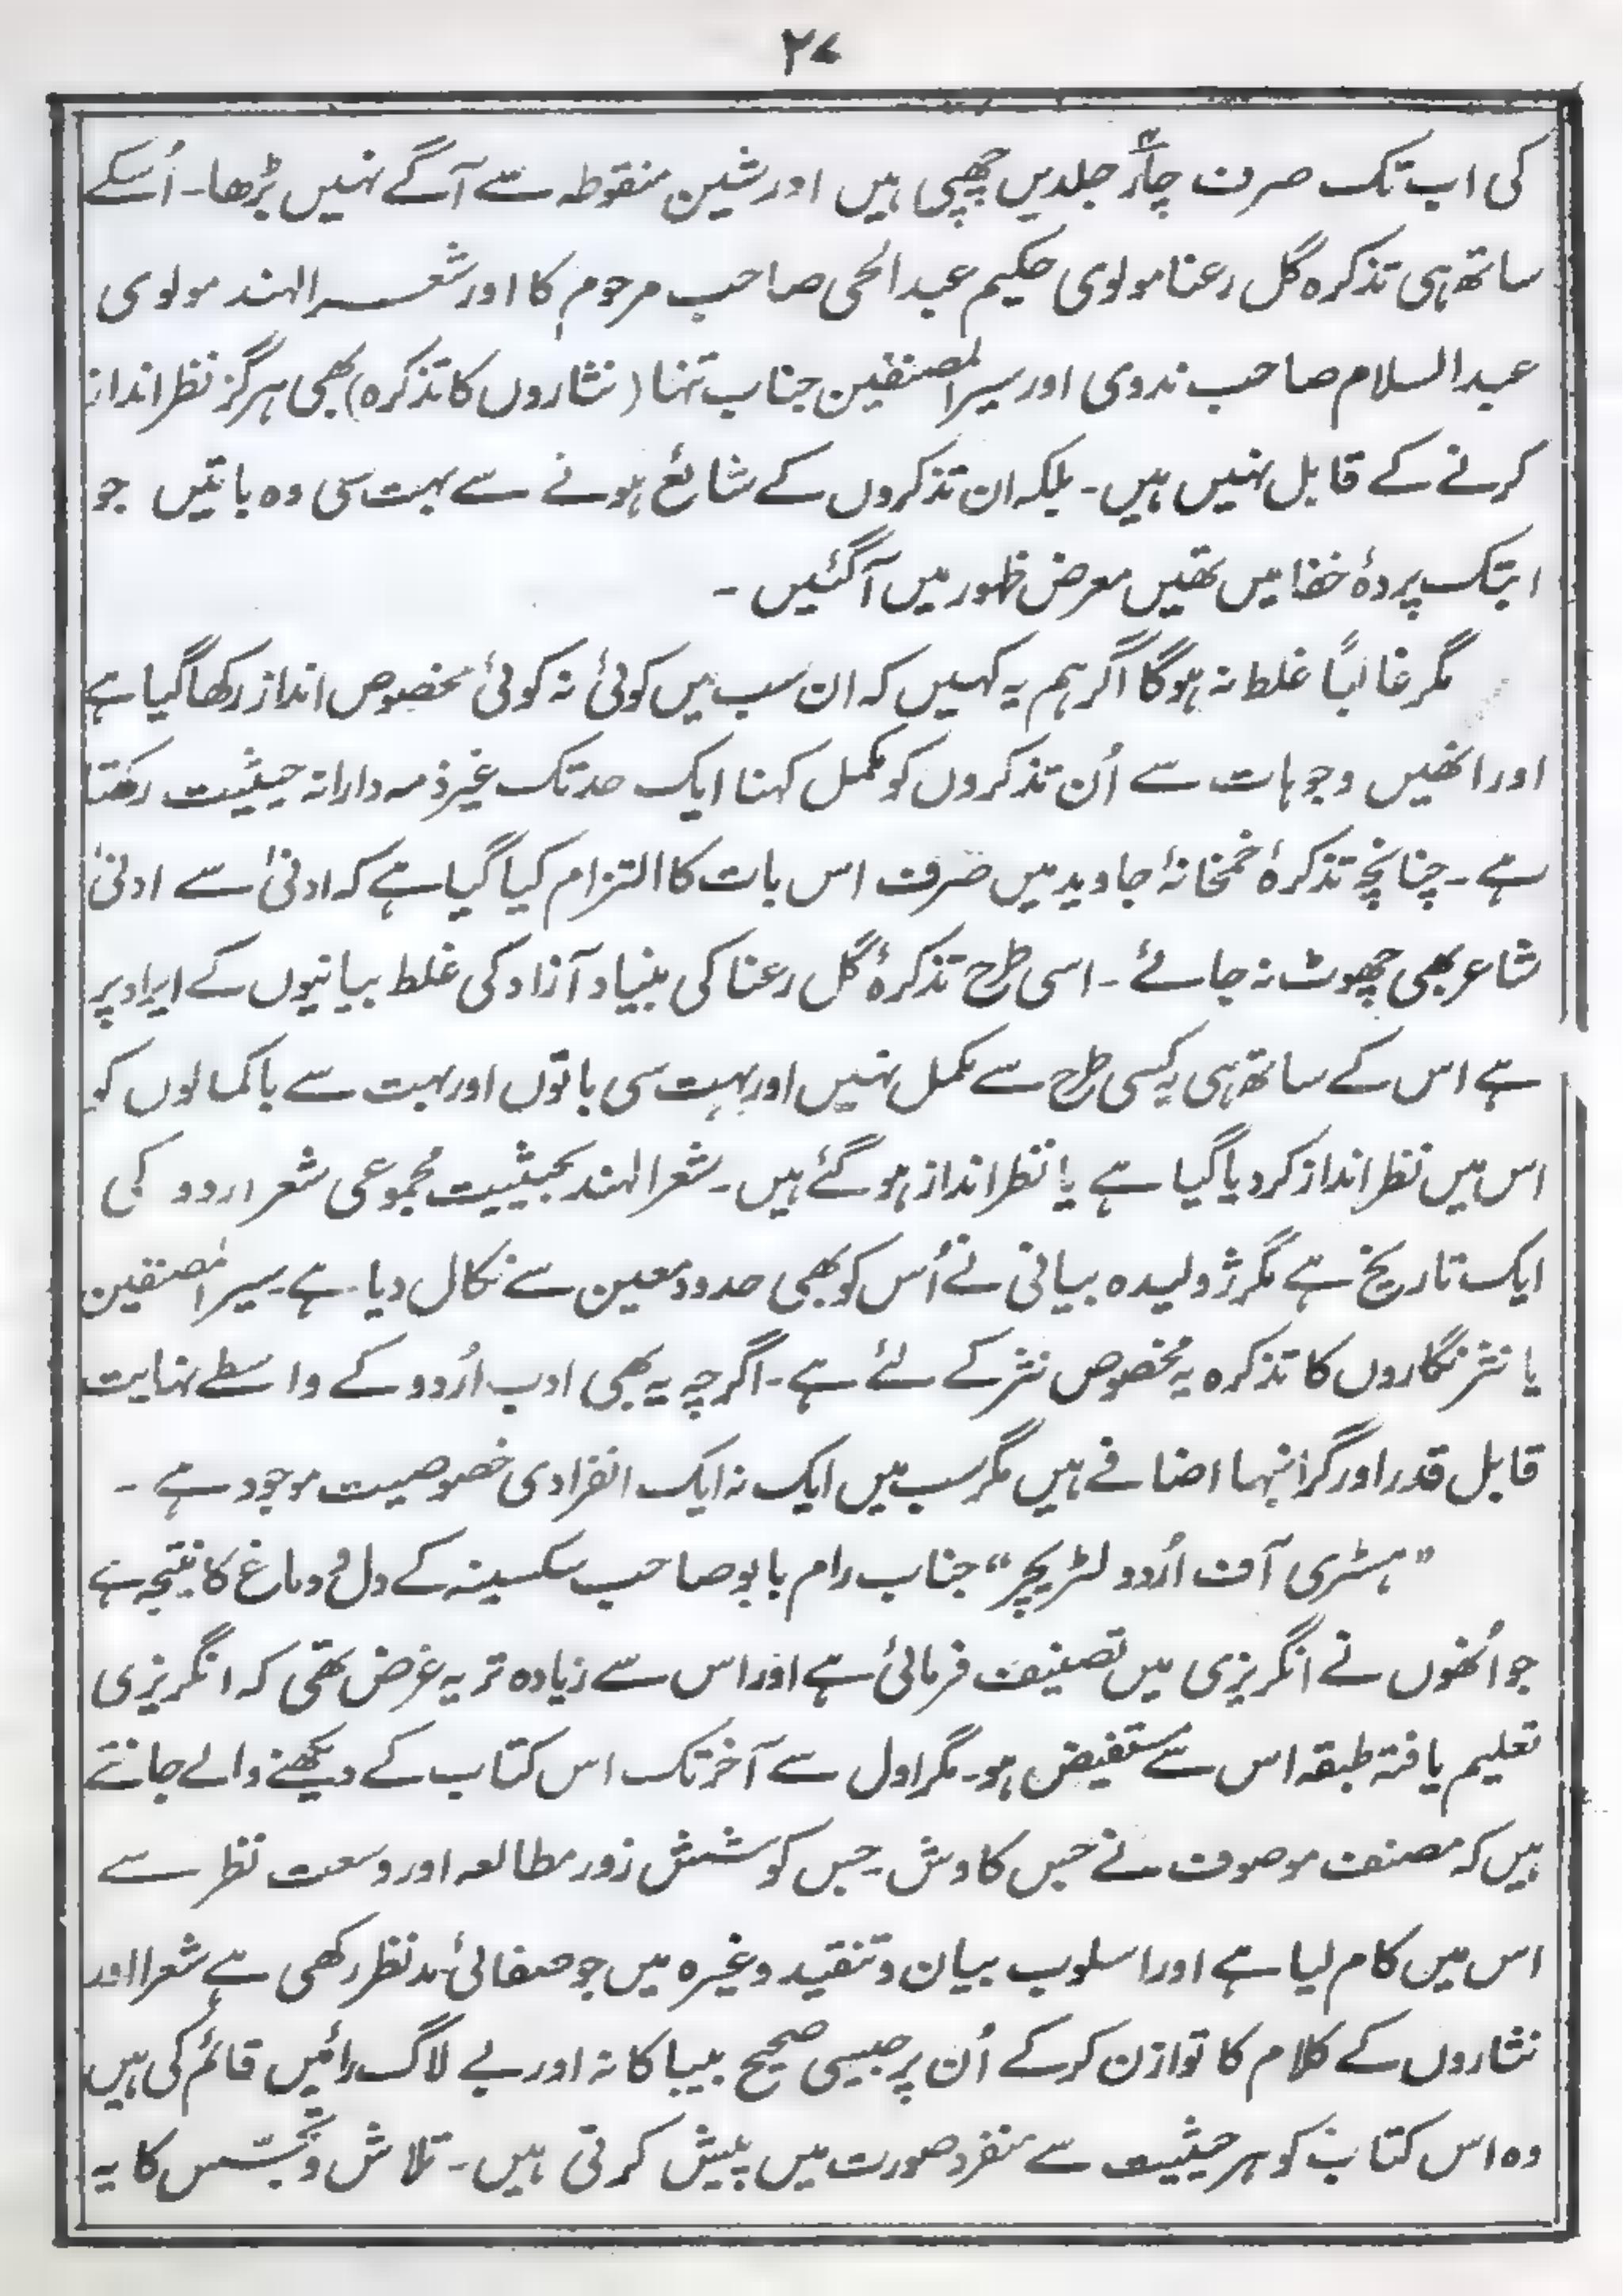 ۲۷
کی اب تک صرف چار۴ جلدیں چھپی ہیں اور شین منقوطہ سے آگے نہیں بڑھا۔ اُسکے
ساتھ ہی تذکرہ گل رعنا مولوی حکیم عبدالحی صاحب مرحوم کا اور شعرالہند مولوی
عبدالسلام صاحب ندوی اور سیرالمصنفین جناب تنہا (نثاروں کا تذکرہ) بھی ہرگز نظر انداز
کرنے کے قابل نہیں ہیں۔ بلکہ ان تذکروں کے شائع ہونے سے بہت سی وہ باتیں جو
ابتک پردۂ خفا میں تھیں معرض ظہور میں آگئیں ۔
مگر غالباً غلط نہ ہوگا اگر ہم یہ کہیں کہ ان سب میں کوئی نہ کوئی مخصوص انداز رکھا گیا ہے
اور انھیں وجوہات سے اُن تذکروں کو مکمل کہنا ایک حد تک غیر ذمہ دارانہ حیثیت رکھتا
ہے۔ چنانچہ تذکرۂ خمخانۂ جاوید میں صرف اس بات کا التزام کیا گیا ہے کہ ادنیٰ سے ادنیٰ
شاعر بھی چھوٹ نہ جائے ۔ اسی طرح تذکرۂ گل رعنا کی بنیاد آزاد کی غلط بیانیوں کے ایراد پر
ہے اس کے ساتھ ہی یہ کسی طرح سے مکمل نہیں اور بہت سی باتوں اور بہت سے باکمالوں کو
اس میں نظر انداز کر دیا گیا ہے یا نظر انداز ہو گئے ہیں۔ شعرالہند بحیثیت مجموعی شعر اردو کی
ایک تاریخ ہے مگر ژولیدہ بیانی نے اُس کو بھی حدود معین سے نکال دیا ہے۔ سیرالمصنفین
یا نثر نگاروں کا تذکرہ یہ مخصوص نثر کے لئے ہے۔ اگرچہ یہ بھی ادب اُردو کے واسطے نہایت
قابل قدر اور گرانبہا اضافے ہیں مگر سب میں ایک نہ ایک انفرادی خصوصیت موجود ہے ۔
”ہسٹری آف اُردو لٹریچر“ جناب رام بابو صاحب سکسینہ کے دل و دماغ کا نتیجہ ہے
جو اُنھوں نے انگریزی میں تصنیف فرمائی ہے اور اس سے زیادہ تر یہ غرض تھی کہ انگریزی
تعلیم یافتہ طبقہ اس سے مستفیض ہو۔ مگر اول سے آخر تک اس کتاب کے دیکھنے والے جانتے
ہیں کہ مصنف موصوف نے جس کاوش۔ جس کوشش زور مطالعہ اور وسعت نظر سے
اس میں کام لیا ہے اور اسلوب بیان و تنقید وغیرہ میں جو صفائی مدنظر رکھی ہے شعرا اور
نثاروں کے کلام کا توازن کرکے اُن پر جیسی صحیح بیباکانہ اور بے لاگ رائیں قائم کی ہیں
وہ اس کتاب کو ہر حیثیت سے منفرد صورت میں پیش کرتی ہیں۔ تلاش و تجسّس کا یہ